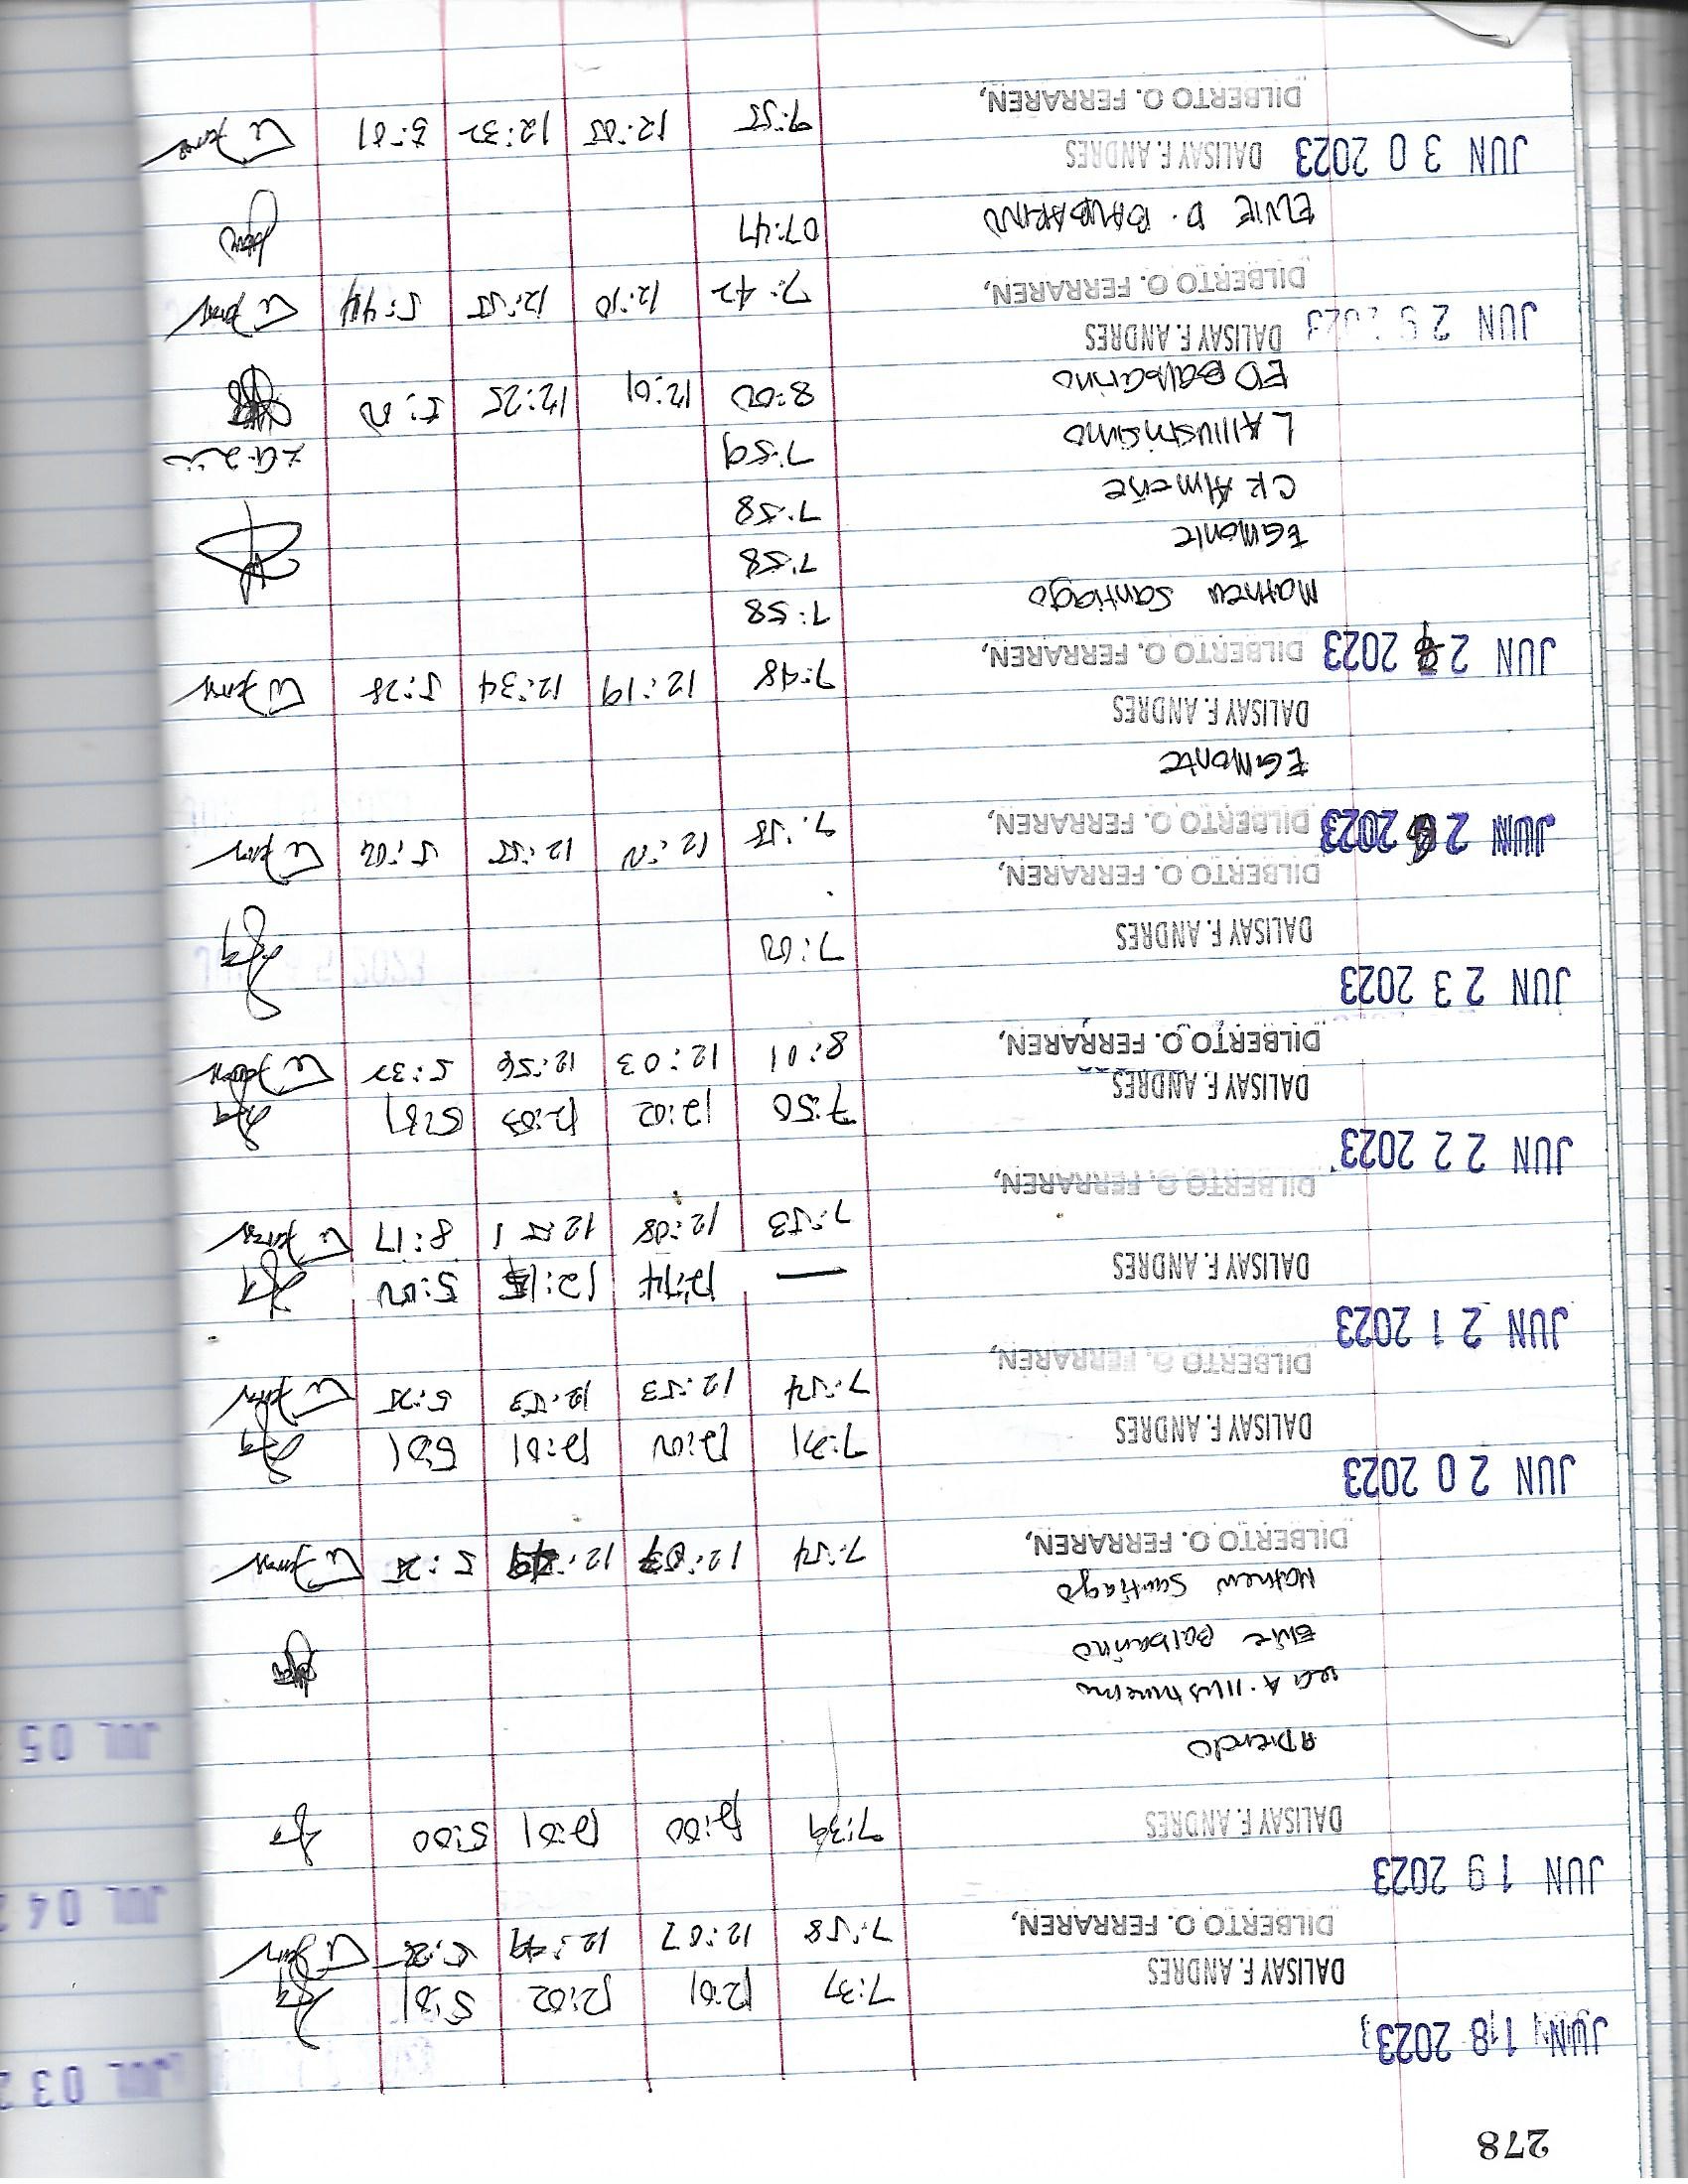 278
JUN 18 2023
DALISAY F. ANDRES 7:37 12:01 12:02 5:01
DILBERTO O. FERRAREN, 7:58 12:07 12:49
JUN 19 2023
DALISAY F. ANDRES 7:39 12:00 12:01 5:00
A Diendo
Elvie Balbarino
Mathew Santiago
DILBERTO O. FERRAREN, 7:54 12:07 12:49
JUN 20 2023
DALISAY F. ANDRES 7:31 12:02 12:01 5:01
DILBERTO O. FERRAREN, 7:54 12:53 12:53 5:25
JUN 21 2023
DALISAY F. ANDRES — 12:14 12:15 5:02
DILBERTO O. FERRAREN, 7:53 12:08 12:51 8:17
JUN 22 2023
DALISAY F. ANDRES 7:50 12:02 12:03 5:01
DILBERTO O. FERRAREN, 8:01 12:03 12:56 5:37
JUN 23 2023
DALISAY F. ANDRES 7:00
DILBERTO O. FERRAREN,
JUN 26 2023 DILBERTO O. FERRAREN, 7:55 12:02 12:55 5:04
EGMonte
DALISAY F. ANDRES
JUN 2 2023 DILBERTO O. FERRAREN, 7:48 12:19 12:34 5:28
Mathew Santiago 7:58
EGMonte 7:58
CK Almeñe 7:58
LAIllustrisimo 7:59
ED Balbarino 8:00 12:01 12:25 5:02
DALISAY F. ANDRES
JUN 29 2023
DILBERTO O. FERRAREN, 7:42 12:10 12:55 5:44
ELVIE D. BALBARINO 07:47
JUN 30 2023 DALISAY F. ANDRES
DILBERTO O. FERRAREN, 7:55 12:05 12:32 5:01
JUL 03 2
JUL 04 2
JUL 05